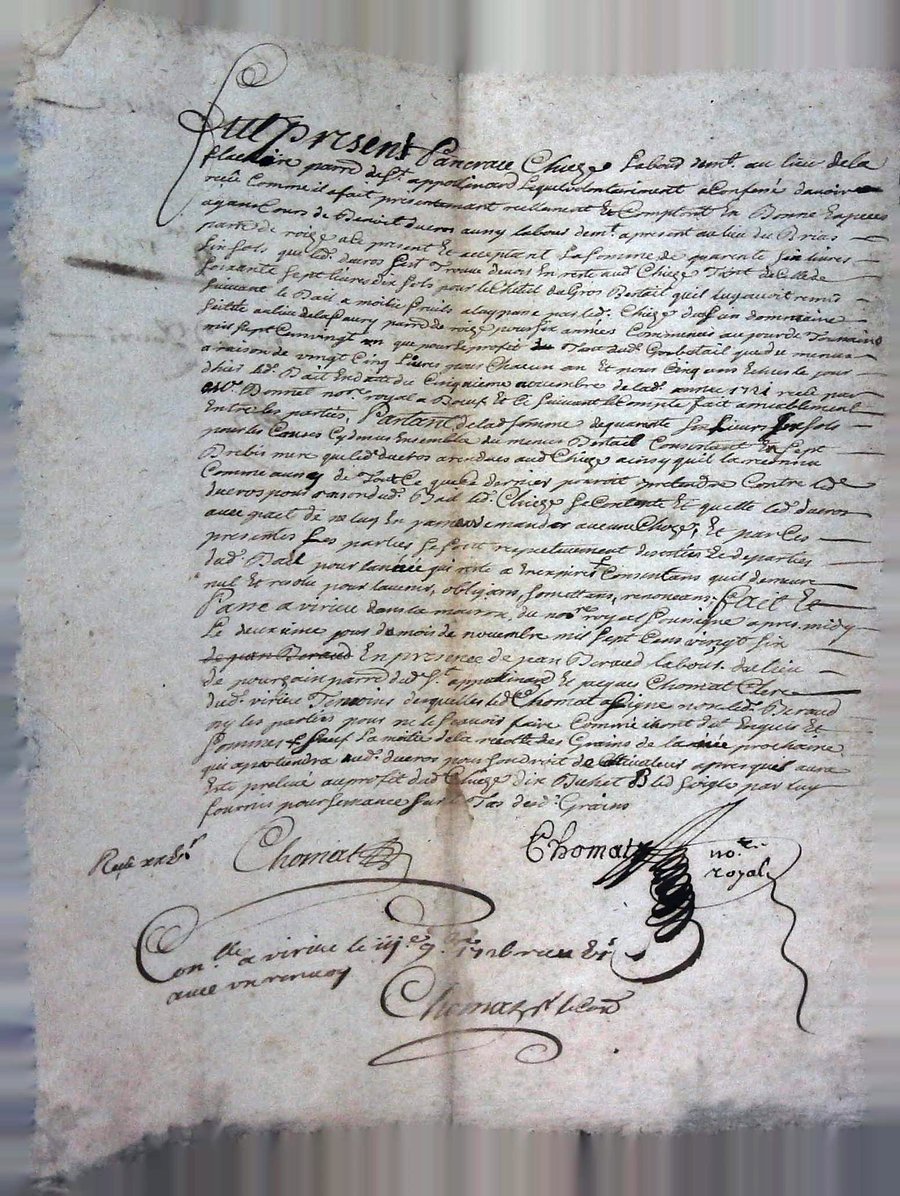 Fut present Pancrace Chieze Labour demt. au lieu de la
parre de St. appolinard Lequel volontairement a Confessé davoir
receu Comme il a fait presentemant reellement Et Comptant En Bonne Especes
ayant Cours de Benoit ducros aussy labour demt. a present au lieu du Brias
parre de roize present Et acceptant La somme de quarente six livres
six sols que led. ducros sest Trouvé devoir En reste aud. Chieze de Celle de
soixante sept livres dix sols pour le du Gros Bestail quil luy avoit remis
suivant le Bail a moitié fruits a luy passé par led. Chieze dun dommaine
scittué au lieu de parre de roize pour six années Commencé au jour de Toussaint
mil sept Cent vingt un que pour le profit Tant dud. Gros bestail que du menu
a raison de vingt Cinq Livres pour Chacun an Et pour Cinq ans Echus le jour
dhier led. Bail En datte du Cinquieme novembre de lad. année 1721 receu par
Me. Bonnet nore. royal a Boeuf Et Ce suivant le Compte fait amiablement
Entre les parties, Partant de lad. somme de quarente six Livres six sols
pour les Causes Cy dessus Ensemble du menu Bestail Consistant En sept
Brebis mere que led. ducros a rendues aud. Chieze ainsy quil la reconnu
Comme aussy de Tout Ce que Ce dernier pouvoit pretendre Contre led.
ducros pour raison dud. Bail led. Chieze se Contente Et quitte led. ducros
avec pact de ne luy En jamais demander aucune Choze, Et par Ces
presentes Les parties se sont respectivement desistées Et departies
dud. Bail pour lannée qui reste a Expirer Consentans quil demeure
nul Et resolu pour lavenir, obligeans, somettans, renoncans; fait Et
Passé a virieu dans la maison du nore. royal soussigné apres midy
Le deuxieme jour du mois de novembre mil sept Cens vingt six
de jean Beraud En presence de jean Beraud labour. du lieu
de pourzain parre dud. St. appolinard Et jacques Chomat Clerc
dud. virieu Temoins desquels led. Chomat a signé non led. Beraud
ny les parties pour ne le scavoir faire Comme ils ont dit Enquis Et
sommes sauf La moitié de la recolte des Grains de lannée prochaine
qui appartiendra aud. ducros pour son droit de Cultivateur apres quil aura
Esté prelevé au profit dud. Chieze dix Bichet Bled seigle par luy
fournis pour semance sur le Tas desd. Grains
Chomat
Chomat nore.
royal
Conlle. a virieu le iije 9bre 1726 receu
avec un renvoy
Chomat